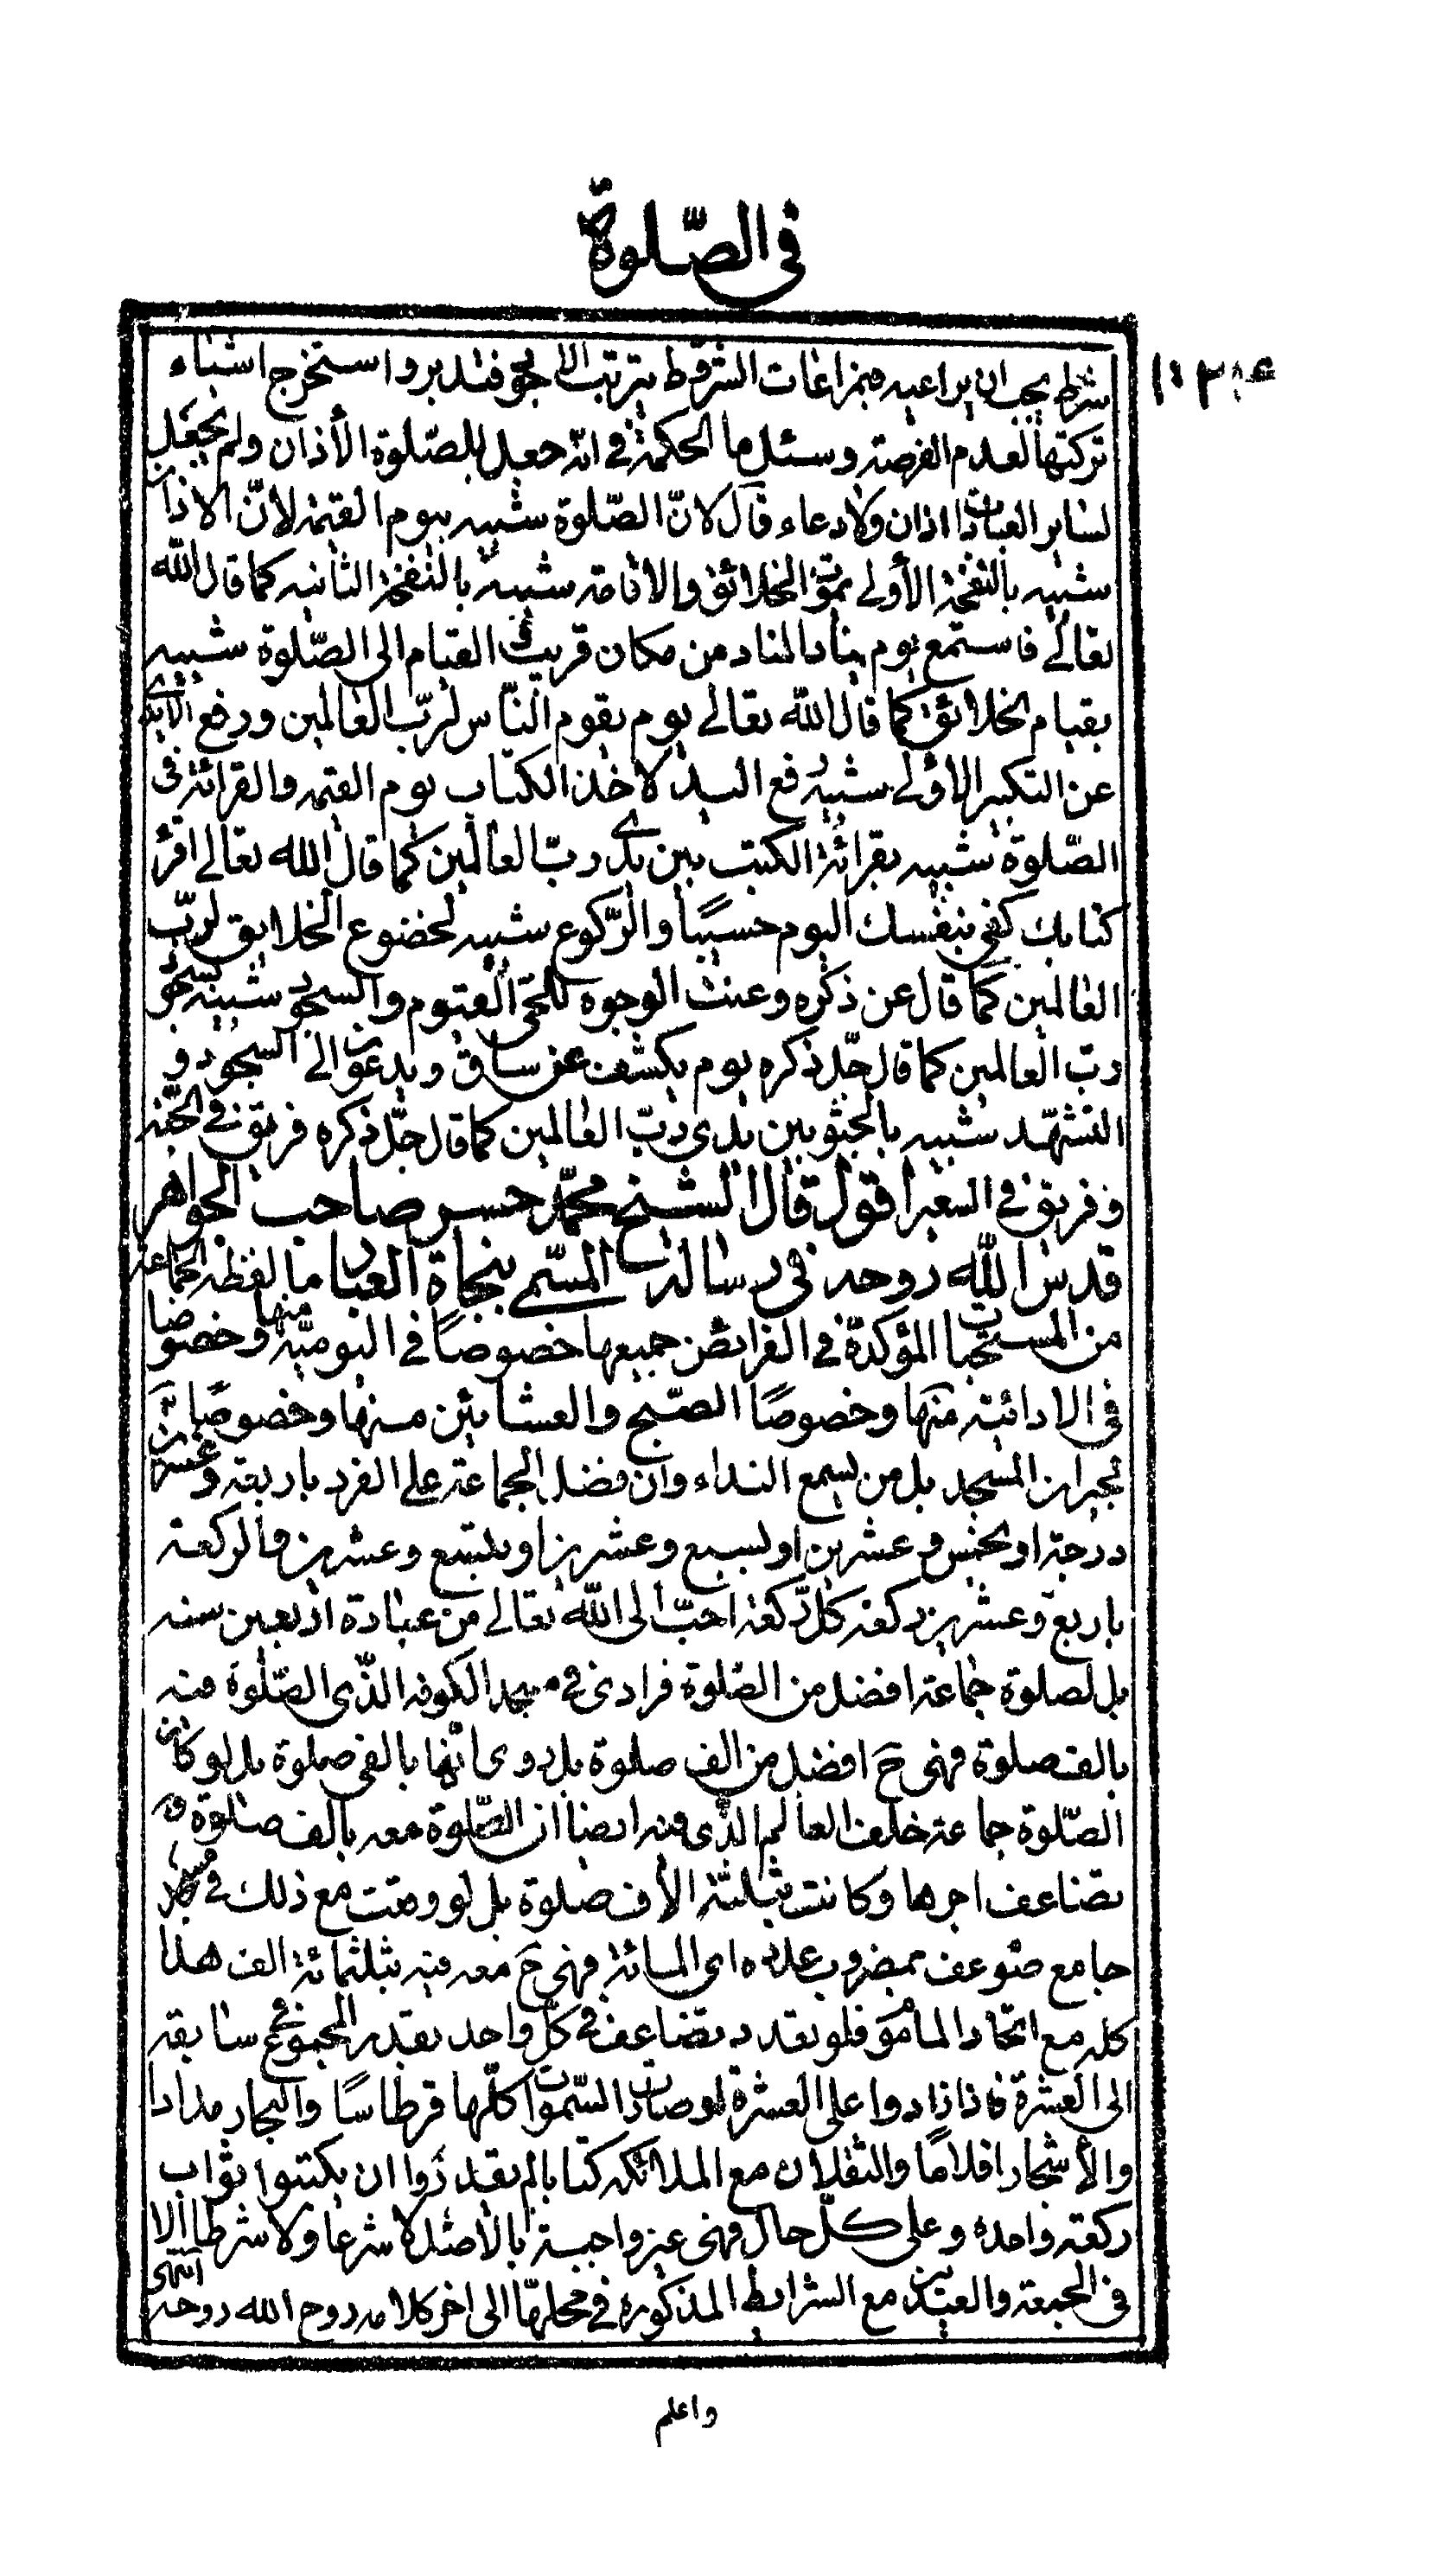 فى الصّلوة
شرط يجب ان يراعيه فبمراعات الشروط يترتب الاجو فتدبر و استخرج اشياء
تركتها لعدم الفرصة وسئل ما الحكمة فى انّه جعل للصّلوة الأذان ولم يجعل
لساير العبادات اذان ولا دعاء قال لانّ الصّلوة شبيه بيوم القيمة لانّ الاذان
شبيه بالنفخة الأولى بموت الخلائق والاقامة شبيه بالنفخة الثانيه كما قال الله
تعالى فاستمع يوم يناد المناد من مكان قريب والقيام الى الصّلوة شبيه
بقيام الخلائق كما قال الله تعالى يوم يقوم النّاس لربّ العالمين ورفع الايدى
عن التكبير الاولى شبيه رفع اليد لاخذ الكتاب يوم القيمه والقرائة فى
الصّلوة شبيه بقرائة الكتب بين يدى ربّ العالمين كما قال الله تعالى اقرء
كتابك كفى بنفسك اليوم حسيبًا والرّكوع شبيه لخضوع الخلايق لربّ
العالمين كما قال عن ذكره وعنت الوجوه للحىّ القيّوم والسجود شبيه بسجود
ربّ العالمين كما قال جلّ ذكره يوم يكشف عن ساق ويدعون الى السجود و
التشهّد شبيه بالجثو بين يدى ربّ العالمين كما قال جلّ ذكره فريق فى الجنّه
وفريق فى السعير اقول قال الشيخ محمّد حسن صاحب الجواهر
قدس الله روحه فى رسالته المسمّى بنجاة العباد ما لفظه الجماعة
من المستحبات المؤكدة فى الفرائض جميعها خصوصًا فى اليوميّه منها وخصوصا
فى الادائيّه منها وخصوصًا الصّبح والعشائين منها وخصوصًا
لجيران المسجد بل من يسمع النداء وان فضل الجماعة على الفرد باربعة وعشرين
درجة او بخمس وعشرين او بسبع وعشرين او بتسع وعشرين فالركعة
باربع وعشرين ركعة كل ركعة احبّ الى الله تعالى من عبادة اربعين سنه
بل لصلوة جماعة افضل من الصّلوة فرادى فى مسجد الكوفه الذّى الصّلوة فيه
بالف صلوة فهى ح افضل من الف صلوة بل روى انّها بالفى صلوة بل لو كان
الصّلوة جماعة خلف العالم الذّى فيه ايضا ان الصّلوة معه بالف صلوة
تضاعف اجرها وكانت بثلثة الأف صلوة بل لو وقعت مع ذلك فى مسجد
جامع ضوعف بمضروب عدده اى المائة فهى ح معه فيه بثلثمائة الف هذا
كله مع اتحاد المأموم فلو تعدد تضاعف فى كلّ واحد بقدر المجموع فى سابقه
الى العشرة فاذا زادوا على العشرة لو صارت السّموات كلّها قرطاسًا والبحار مدادا
والأشجار اقلامًا والثقلان مع الملائكه كتابا لم يقدروا ان يكتبوا ثواب
ركعة واحدة وعلى كلّ حال فهى غير واجبة بالاصل لا شرعا ولا شرطا الا
فى الجمعة والعيدين مع الشرايط المذكورة فى محلهّا الى اخر كلامه روح الله روحه انتهى
واعلم